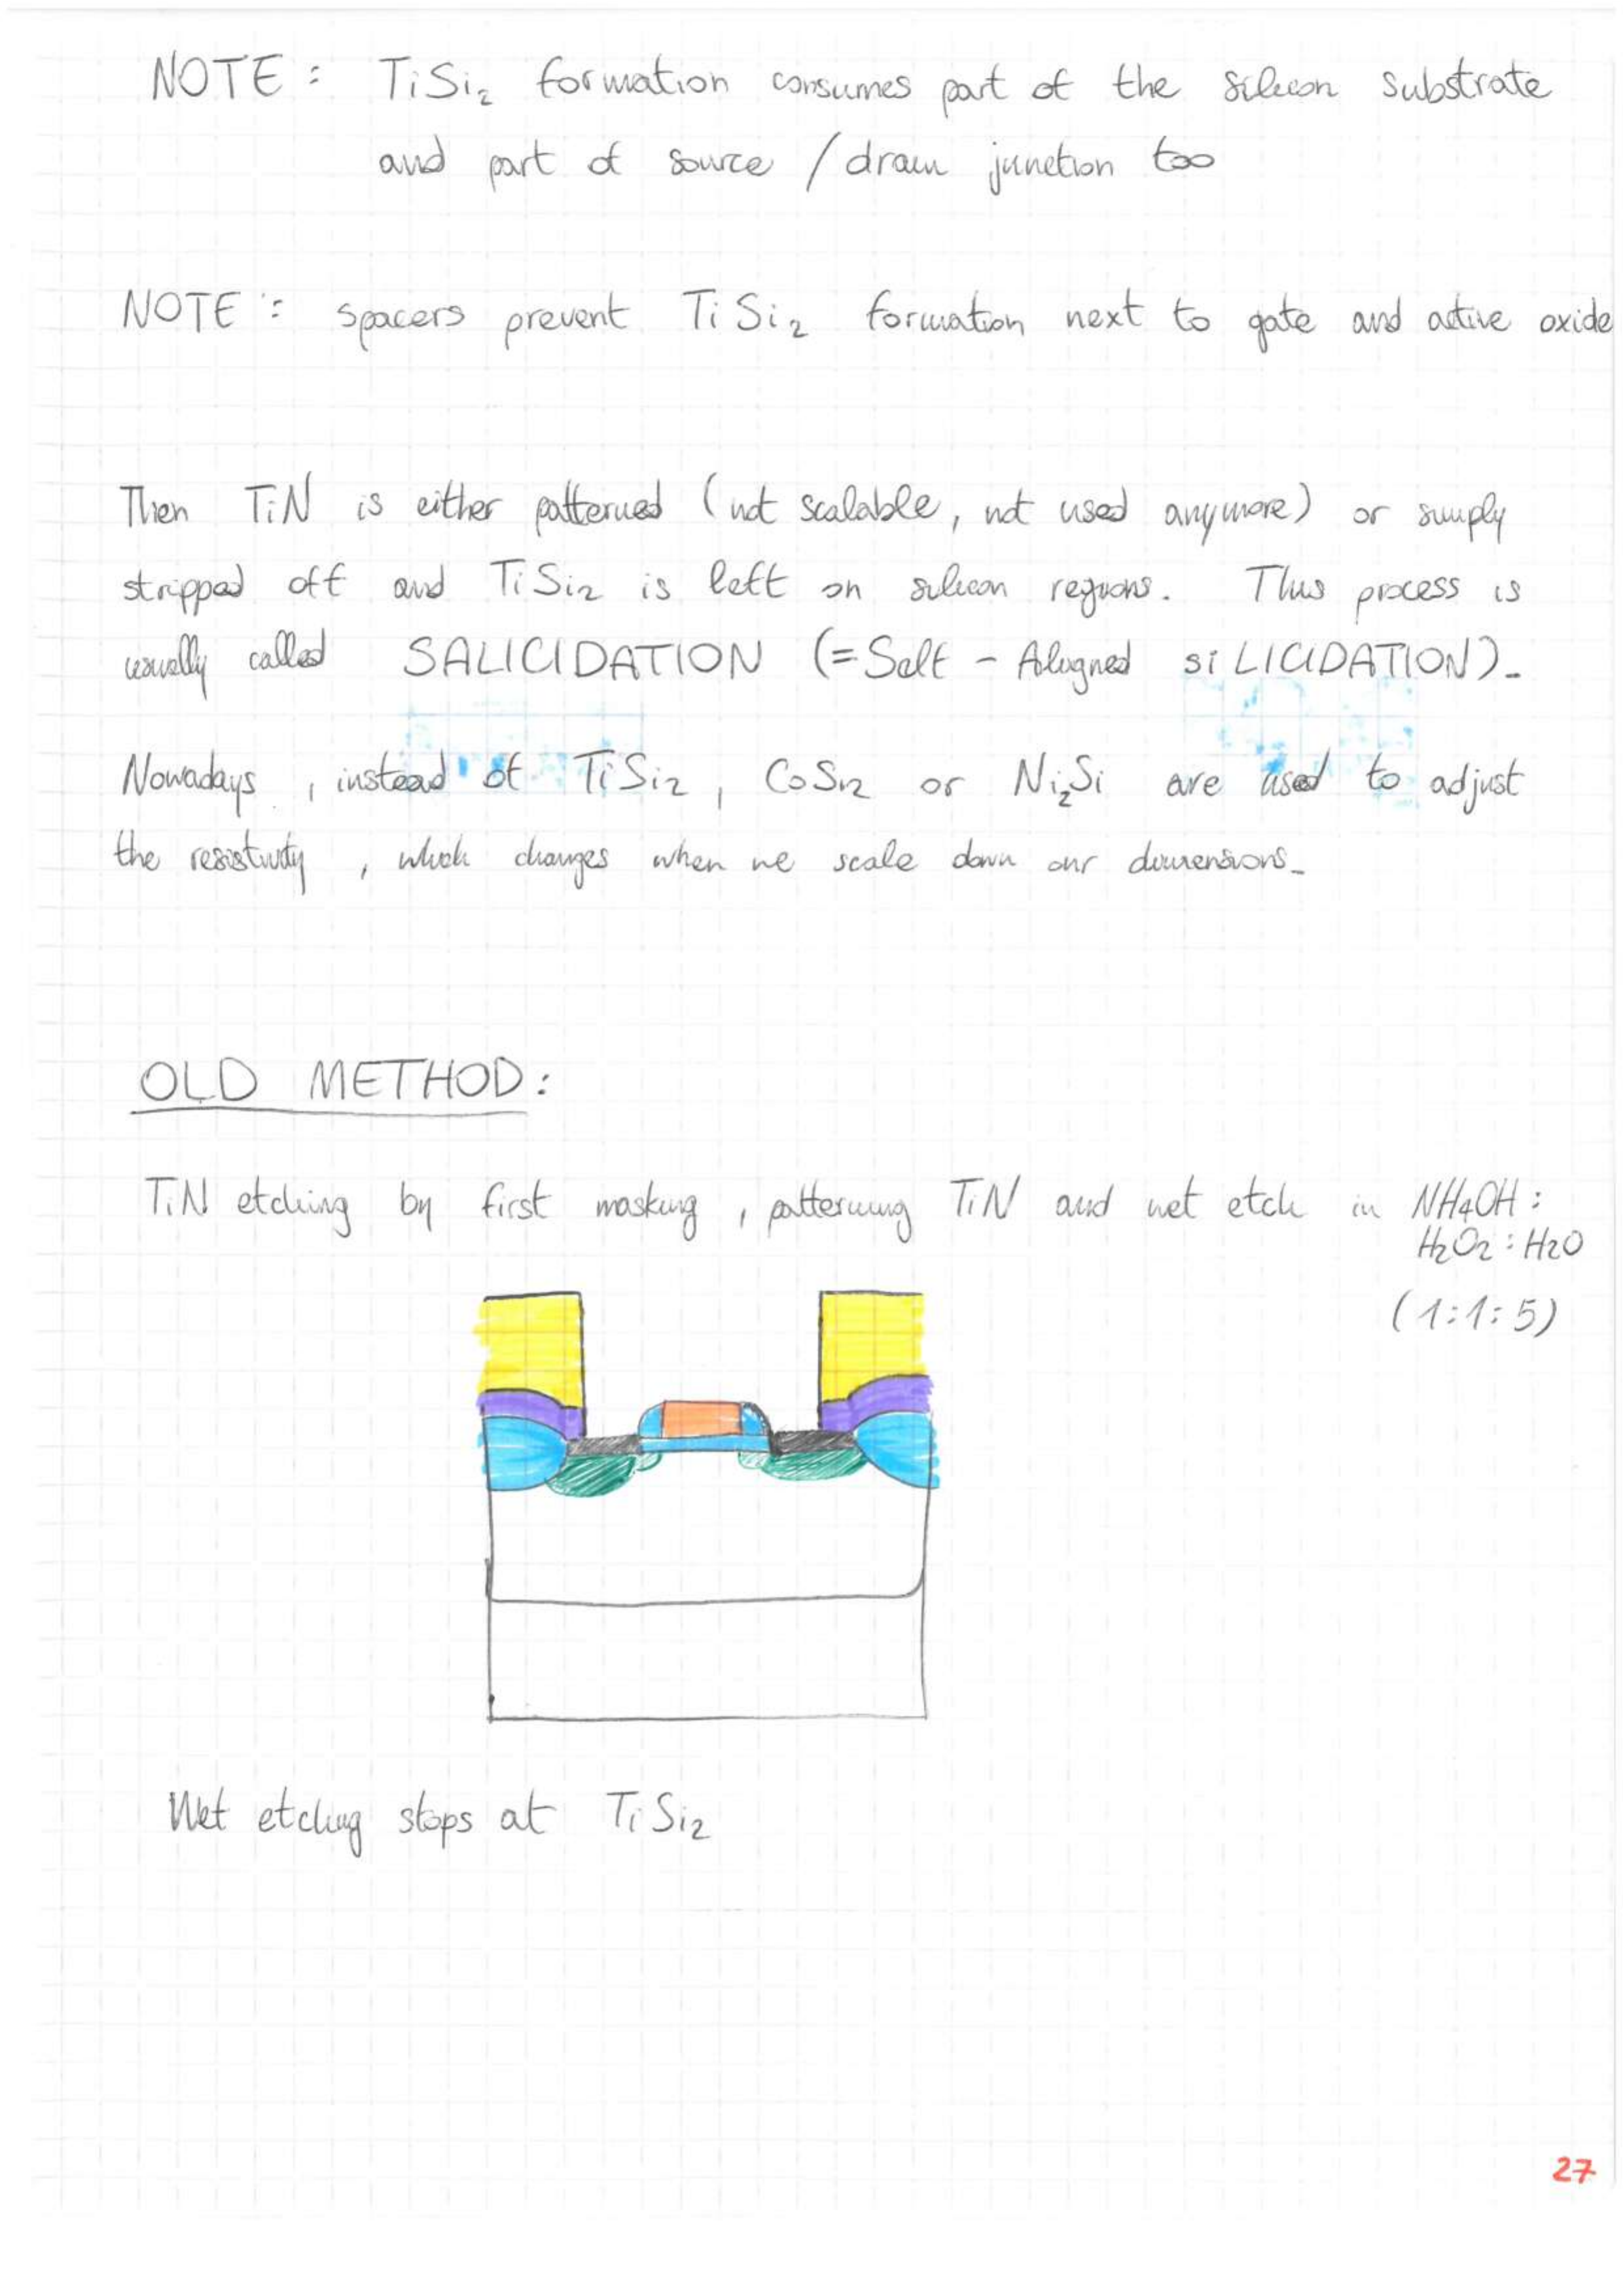 NOTE : TiSi₂ formation consumes part of the silicon substrate
and part of source / drain junction too
NOTE : spacers prevent TiSi₂ formation next to gate and active oxide
Then TiN is either patterned (not scalable, not used anymore) or simply
stripped off and TiSi₂ is left on silicon regions. This process is
usually called SALICIDATION (= Self - Aligned siLICIDATION).
Nowadays, instead of TiSi₂, CoSi₂ or Ni₂Si are used to adjust
the resistivity, which changes when we scale down our dimensions.
OLD METHOD:
TiN etching by first masking, patterning TiN and wet etch in NH4OH :
H₂O₂ : H₂O
(1:1:5)
Wet etching stops at TiSi₂
27